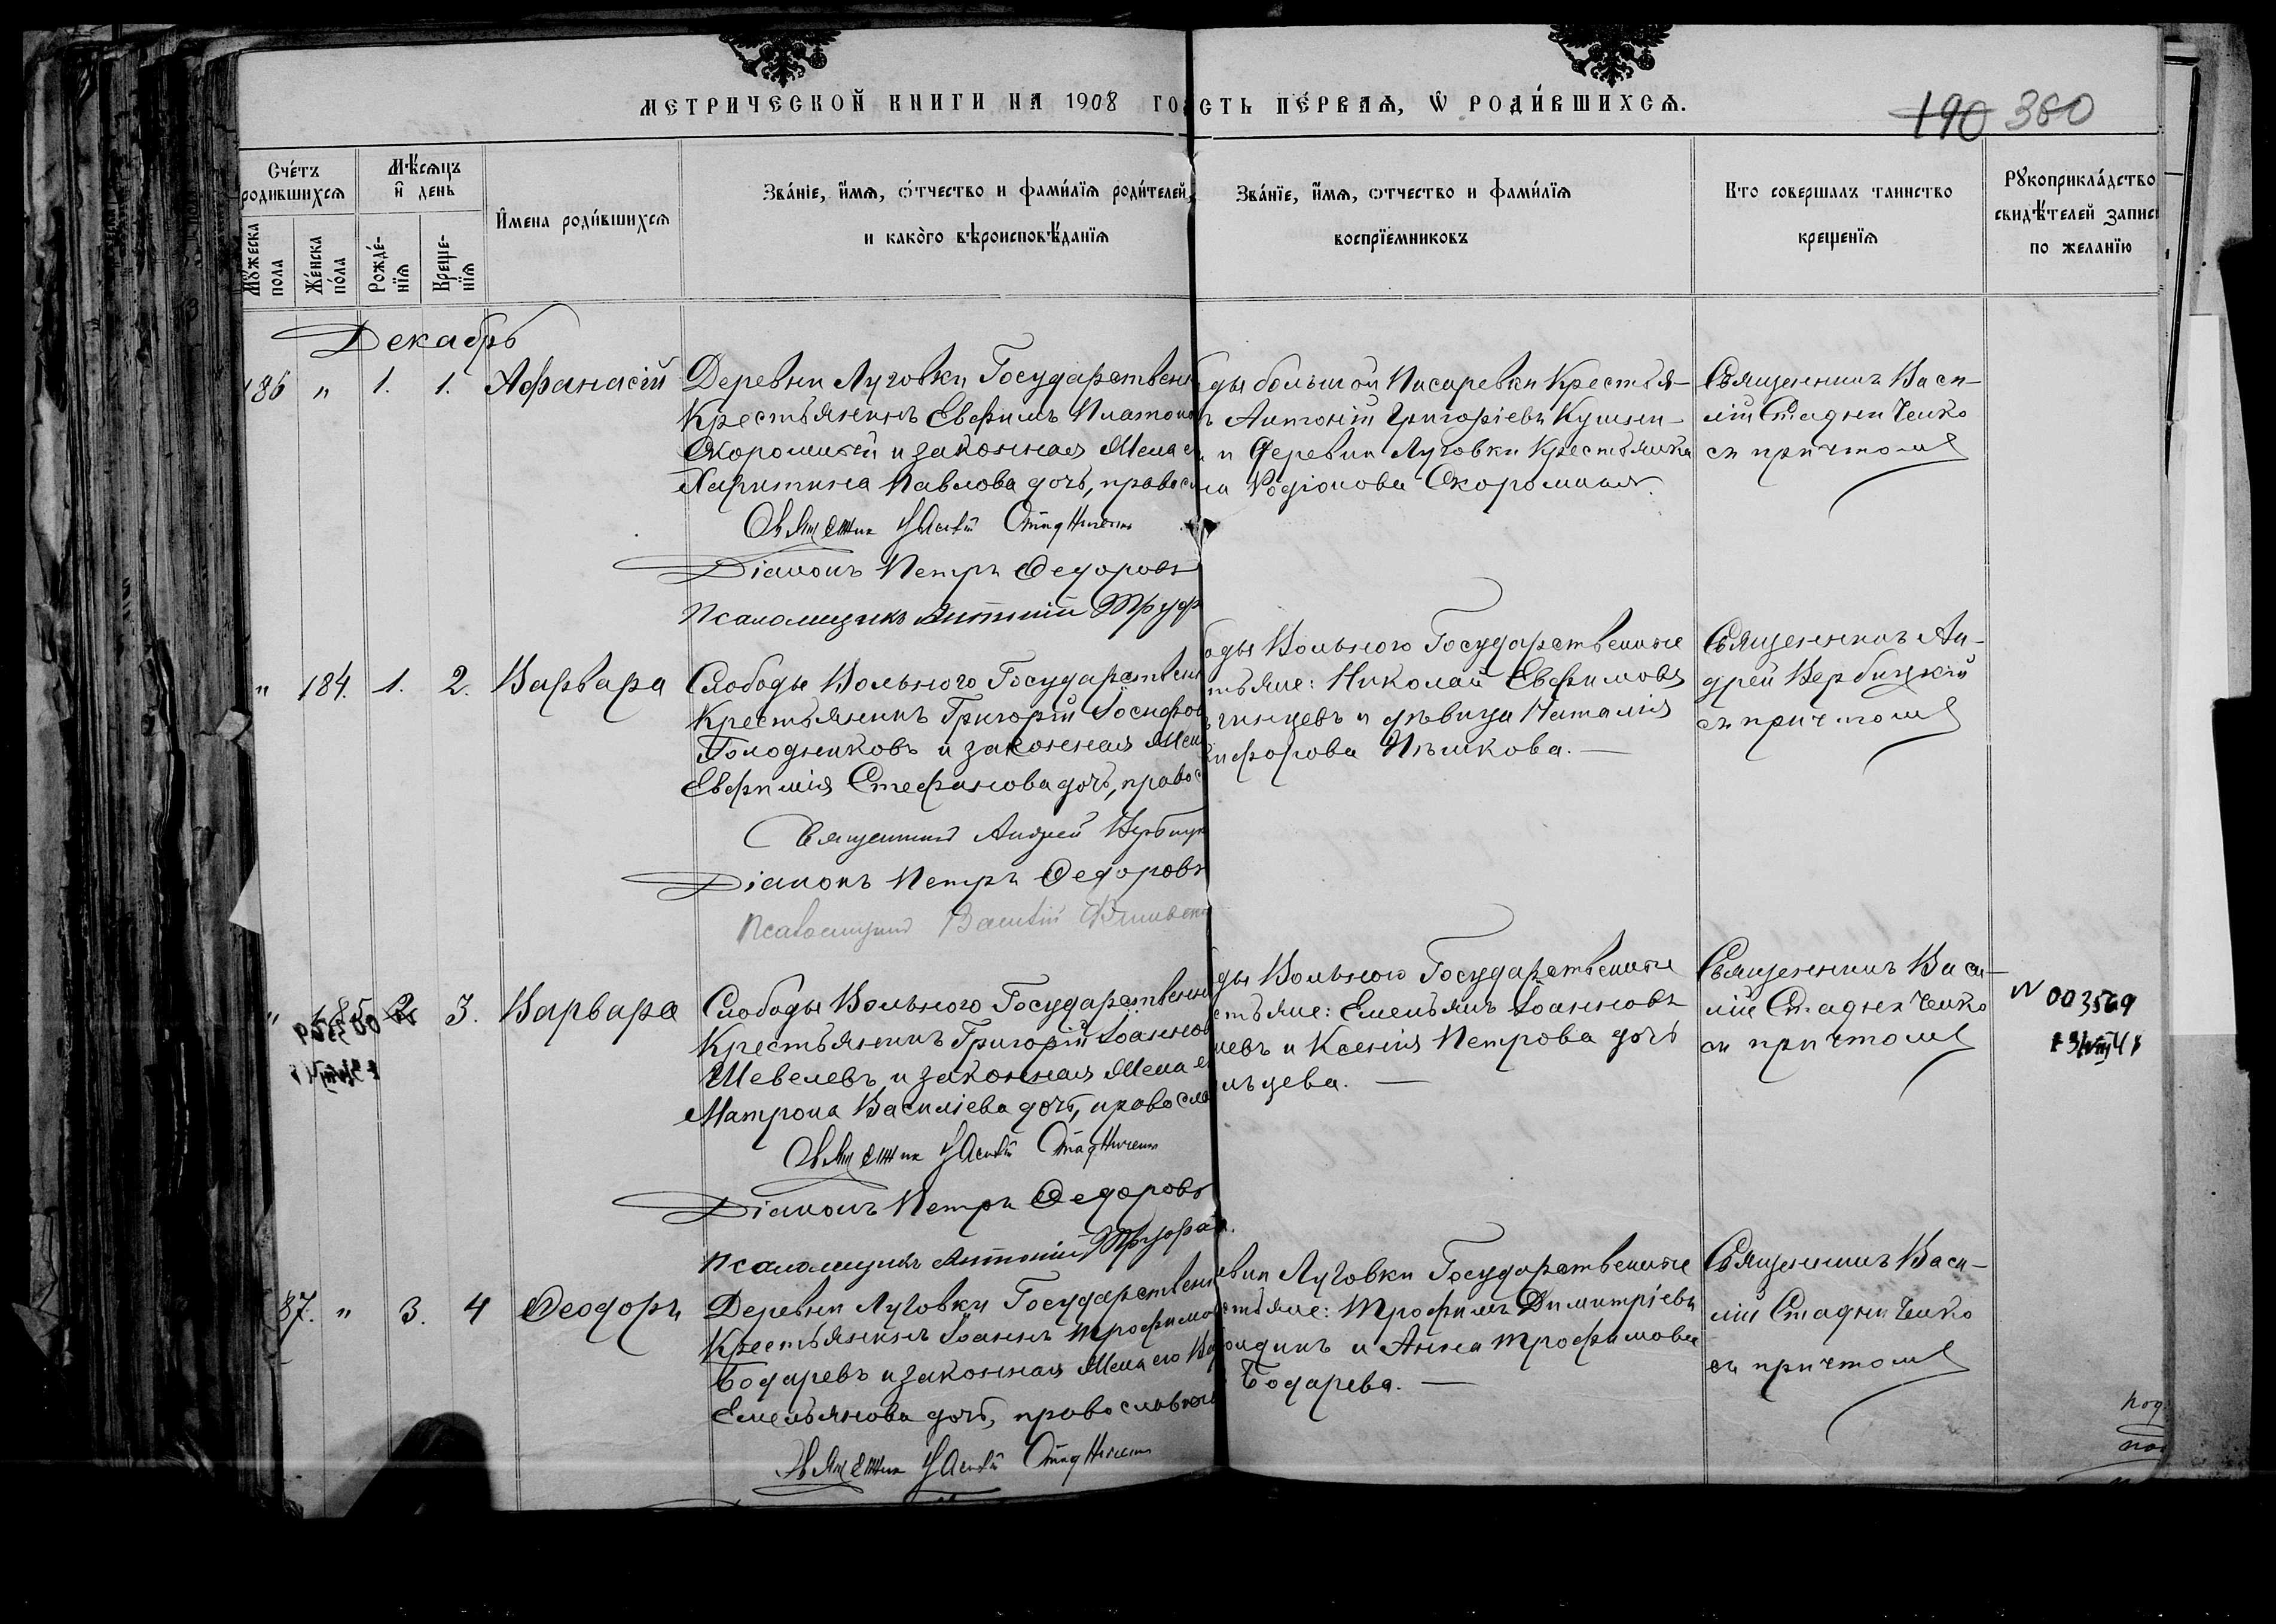 МЕТРИЧЕСКОЙ КНИГИ НА 1908 ГО
СТЬ ПЕРВАЯ, Ѡ РОДИВШИХСЯ.
190 380
Счетъ родившихся
Мѣсяцъ и день
Мужеска пола
Женска пола
Рожденія
Крещенія
Имена родившихся
Званіе, имя, отчество и фамилія родителей,
и какого вѣроисповѣданія
Званіе, имя, отчество и фамилія
воспріемниковъ
Кто совершалъ таинство
крещенія
Рукоприкладство
свидѣтелей запис
по желанію
Декабрь
186 " 1. 1. Афанасій
Деревни Луговки Государствен
Крестьянинъ Евфимъ Платоно
Скоромный и законная жена е
Харитина Павлова дочь, правос
Священникъ Василій Стадниченко
Діаконъ Петръ Ѳедоровъ
Псаломщикъ Антоній
ды большой Писаревки Крестья-
ъ Антоній Григоріевъ
и деревни Луговки Крестьянка
Родіонова Скоромная.
Священникъ Васи-
лій Стадниченко
съ причтомъ
" 184. 1. 2. Варвара
Слободы Вольного Государствен
Крестьянинъ Григорій Іосифов
Голодниковъ и законная жен
Евфимія Стефанова дочь, правос
Священникъ Андрей Вербицк
Діаконъ Петръ Ѳедоровъ
Псаломщикъ Василій
оды Вольного Государственные
тьяне: Николай Евфимовъ
и дѣвица Наталія
кифорова Пѣшкова.
Священникъ Ан-
дрей Вербицкій
съ причтомъ
" 185 2. 3. Варвара
Слободы Вольного Государствен
Крестьянинъ Григорій Іоаннов
Шевелевъ и законная жена е
Матрона Василіева дочь, правосла
Священникъ Василій Стадниченко
Діаконъ Петръ Ѳедоровъ
Псаломщикъ Антоній
ды Вольного Государственные
стьяне: Емельянъ Іоанновъ
левъ и Ксенія Петрова дочь
льцева.
Священникъ Васи-
лій Стадниченко
съ причтомъ
N 003569
87. " 3. 4 Ѳеодоръ
Деревни Луговки Государствен
Крестьянинъ Іоаннъ Трофимо
Бодаревъ и законная жена его
Емельянова дочь, православные
Священникъ Василій Стадниченко
евни Луговки Государственные
стьяне: Трофимъ Димитріевъ
и Анна Трофимова
Бодарева.
Священникъ Васи-
лій Стадниченко
съ причтомъ